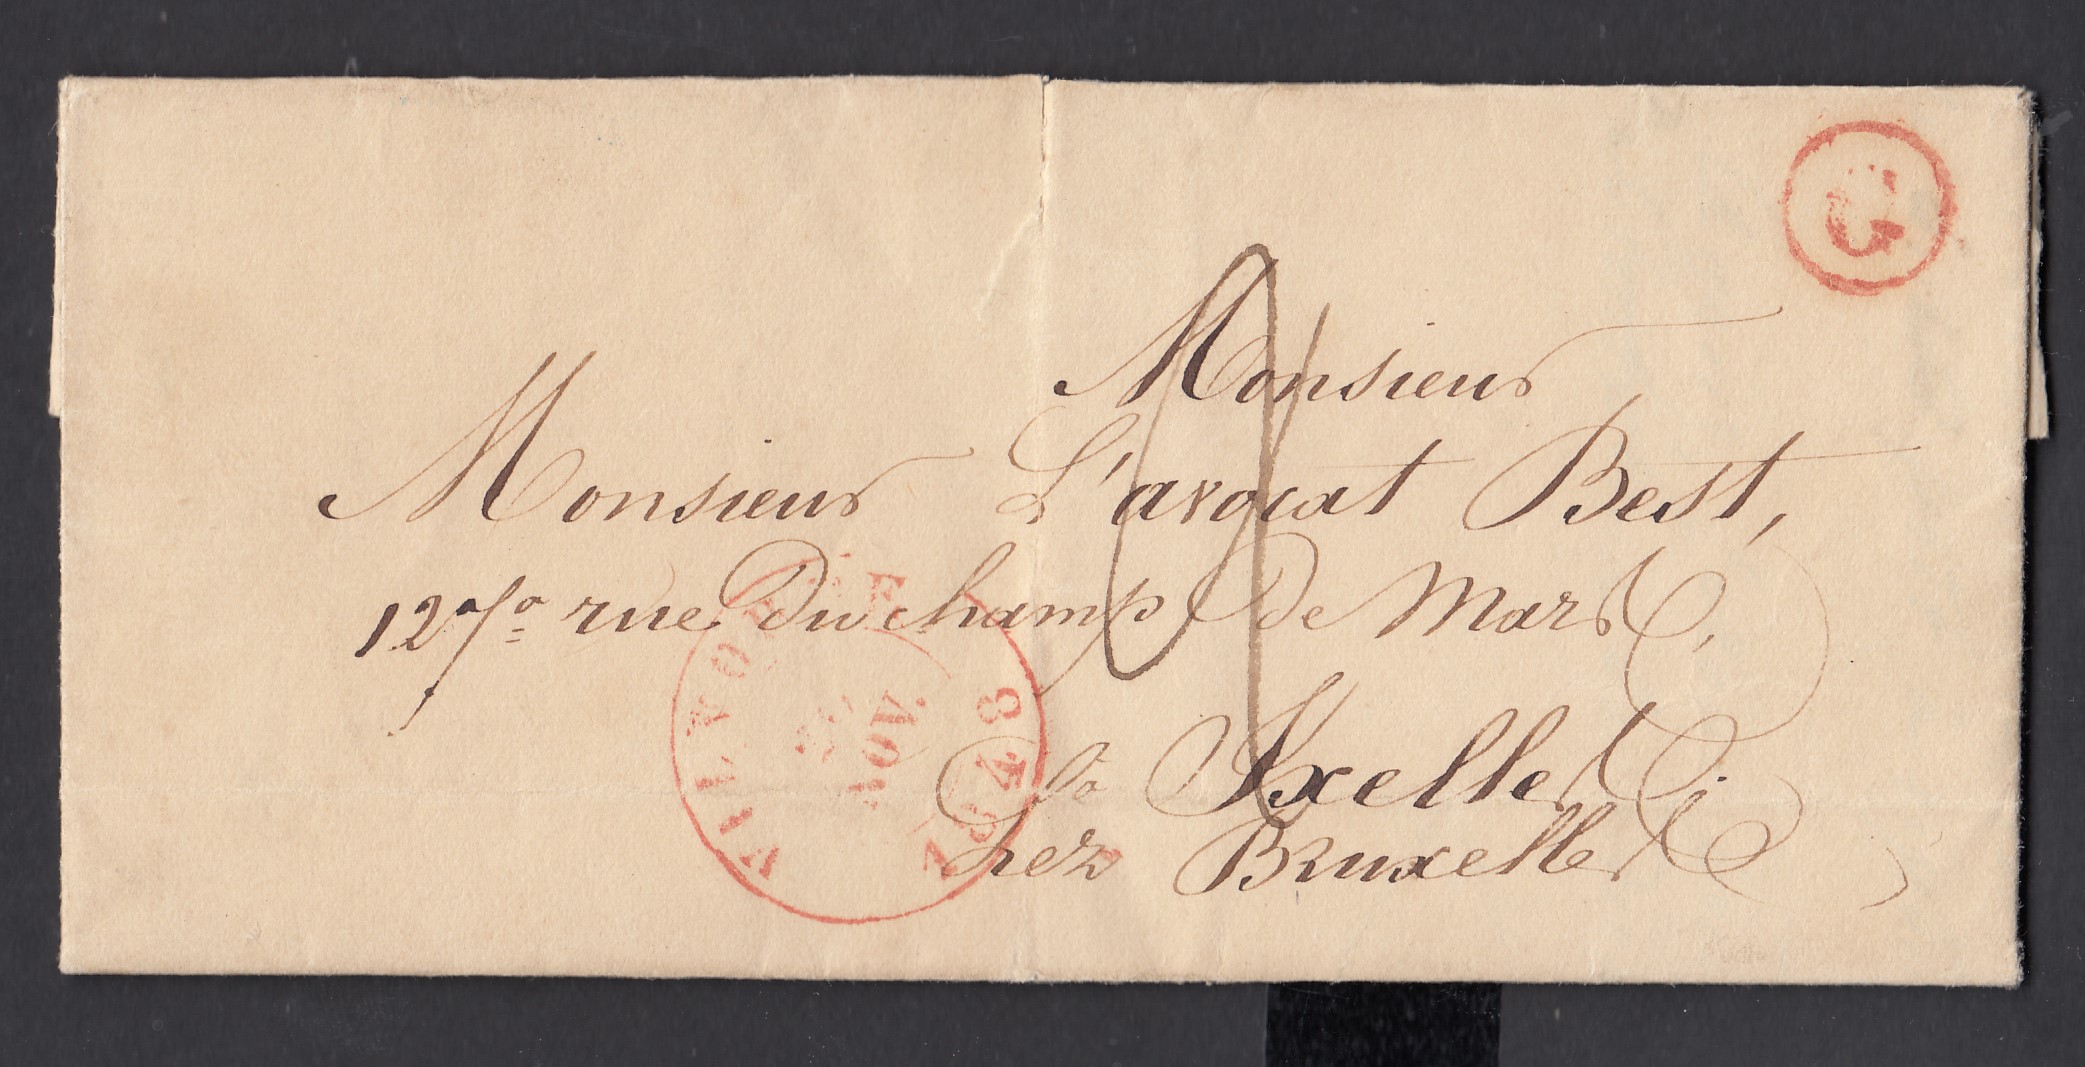 G
Monsieur
Monsieur L'avocat Best,
12 rue Du champ De Mars,
à Ixelles.
Lez Bruxelles
VILVORDE
NOV.
1848